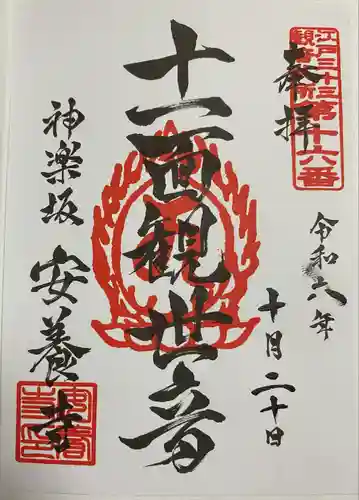 江戸三十三
観音札所第十六番
奉拝
令和六年
十月二十日
十一面観世音
神楽坂 安養寺